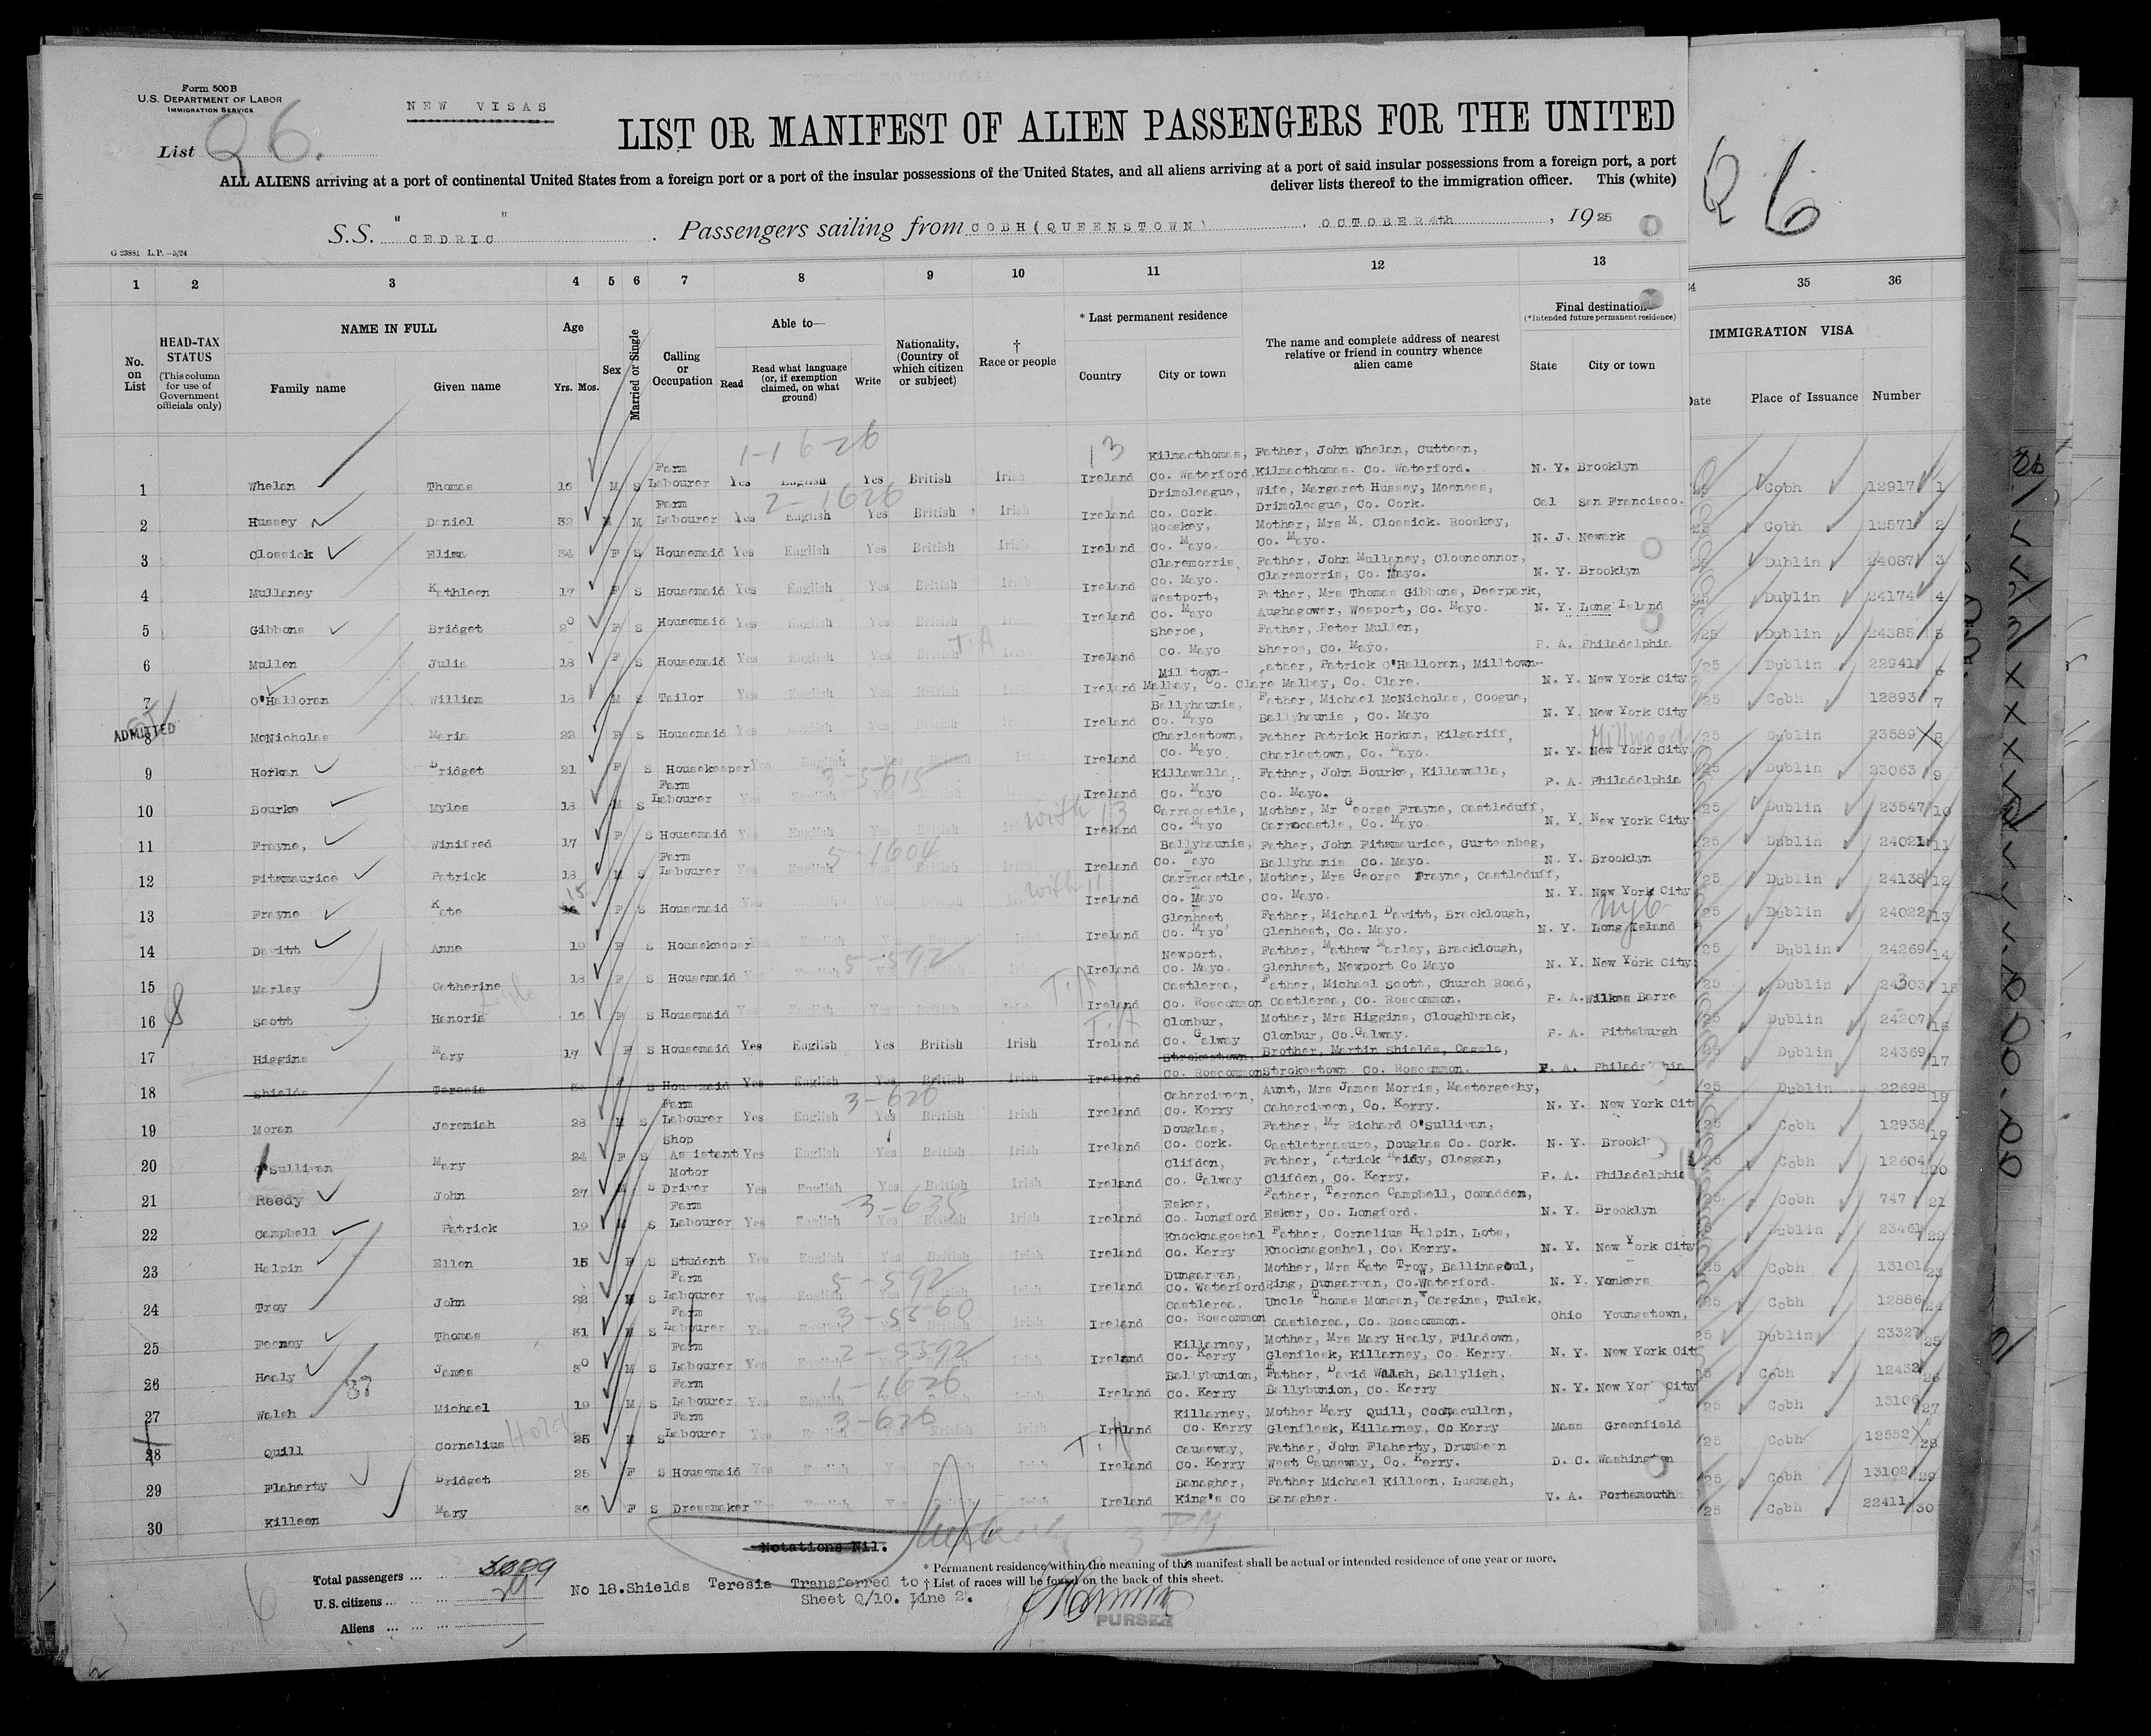 Form 500 B
U.S. DEPARTMENT OF LABOR
IMMIGRATION SERVICE
NEW VISAS
List Q 6.
LIST OR MANIFEST OF ALIEN PASSENGERS FOR THE UNITED
ALL ALIENS arriving at a port of continental United States from a foreign port or a port of the insular possessions of the United States, and all aliens arriving at a port of said insular possessions from a foreign port, a port
deliver lists thereof to the immigration officer. This (white)
Q 6
S.S. "CEDRIC". Passengers sailing from COBH (QUEENSTOWN), OCTOBER 4th, 1925
G 23881 L.P.—5/24
1 2 3 4 5 6 7 8 9 10 11 12 13 34 35 36
No. on List
HEAD-TAX STATUS (This column for use of Government officials only)
NAME IN FULL
Family name Given name
Age
Yrs. Mos.
Sex
Married or Single
Calling or Occupation
Able to—
Read
Read what language (or, if exemption claimed, on what ground)
Write
Nationality, (Country of which citizen or subject)
† Race or people
* Last permanent residence
Country City or town
The name and complete address of nearest relative or friend in country whence alien came
Final destination
(*Intended future permanent residence)
State City or town
IMMIGRATION VISA
Date Place of Issuance Number
1 Whelan Thomas 16 M S Farm Labourer Yes English Yes British Irish Ireland Kilmacthomas, Co. Waterford. Father, John Whelan, Cutteen, Kilmacthomas. Co. Waterford. N. Y. Brooklyn 25 Cobh 12917 1
2 Hussey Daniel 32 M M Farm Labourer Yes English Yes British Irish Ireland Drimoleague, Co. Cork. Wife, Margaret Hussey, Meenees, Drimoleague, Co. Cork. Cal San Francisco. 25 Cobh 12571 2
3 Clossick Eliza 34 F S Housemaid Yes English Yes British Irish Ireland Rooskey, Co. Mayo. Mother, Mrs M. Clossick. Rooskey, Co. Mayo. N. J. Newark Dublin 24087 3
4 Mullaney Kathleen 17 F S Housemaid Yes English Yes British Irish Ireland Claremorris, Co. Mayo. Father, John Mullaney, Cloonconnor, Claremorris, Co. Mayo. N. Y. Brooklyn 25 Dublin 24174 4
5 Gibbons Bridget 20 F S Housemaid Yes English Yes British Irish Ireland Westport, Co. Mayo Father, Mrs Thomas Gibbons, Deerpark, Aughagower, Wesport, Co. Mayo. N. Y. Long Island /25 Dublin 24385 5
6 Mullen Julia 18 F S Housemaid Yes English Yes British Irish Ireland Sheroe, Co. Mayo Father, Peter Mullen, Sheroe, Co. Mayo. P. A. Philadelphia /25 Dublin 22941 6
7 O'Halloran William 18 M S Tailor Yes English Yes British Irish Ireland Milltown-Malbay, Co. Clare Father, Patrick O'Halloran, Milltown-Malbay, Co. Clare. N. Y. New York City /25 Cobh 12893 7
ADMITTED
8 McNicholas Maria 22 F S Housemaid Yes English Yes British Irish Ireland Ballyhaunis, Co. Mayo Father, Michael McNicholas, Coogue, Ballyhaunis, Co. Mayo N. Y. New York City /25 Dublin 23589 8
9 Horkan Bridget 21 F S Housekeeper Yes English Yes British Irish Ireland Charlestown, Co. Mayo. Father Patrick Horkan, Kilgariff, Charlestown, Co. Mayo. N. Y. New York City /25 Dublin 23063 9
10 Bourke Myles 18 M S Farm Labourer Yes English Yes British Irish Ireland Killawalla, Co. Mayo Father, John Bourke, Killawalla, Co. Mayo. P. A. Philadelphia /25 Dublin 23547 10
11 Frayne, Winifred 17 F S Housemaid Yes English Yes British Irish with 13 Ireland Carracastle, Co. Mayo Mother, Mr George Frayne, Castleduff, Carrocastle, Co. Mayo. N. Y. New York City /25 Dublin 24021 11
12 Fitzmaurice Patrick 18 M S Farm Labourer Yes English Yes British Irish Ireland Ballyhaunis, Co. Mayo Father, John Fitzmaurice, Gurteenbeg, Ballyhaunis Co. Mayo. N. Y. Brooklyn /25 Dublin 24138 12
13 Frayne Kate 15 F S Housemaid Yes English Yes British Irish with 11 Ireland Carracastle, Co. Mayo Mother, Mrs George Frayne, Castleduff, Co. Mayo. N. Y. New York City /25 Dublin 24022 13
14 Davitt Anne 19 F S Housekeeper Yes English Yes British Irish Ireland Glenhest Co. Mayo Father, Michael Davitt, Bracklough, Glenhest, Co. Mayo. N. Y. Long Island /25 Dublin 24269 14
15 Marley Catherine 18 F S Housemaid Yes English Yes British Irish Ireland Newport, Co. Mayo. Father, Mathew Marley, Bracklough, Glenhest, Newport Co Mayo N. Y. New York City /25 Dublin 24303 15
16 Scott Hanoria 16 F S Housemaid Yes English Yes British Irish Ireland Castlerea, Co. Roscommon Father, Michael Scott, Church Road, Castlerea, Co. Roscommon. P. A. Wilkes Barre /25 Dublin 24207 16
17 Higgins Mary 17 F S Housemaid Yes English Yes British Irish Ireland Clonbur, Co. Galway Mother, Mrs Higgins, Cloughbrack, Clonbur, Co. Galway. P. A. Pittsburgh /25 Dublin 24369 17
18 Shields Teresia F S Housemaid Yes English Yes British Irish Ireland Strokestown, Co. Roscommon Brother, Martin Shields, Caggle, Strokestown Co. Roscommon. P. A. Philadelphia /25 Dublin 22698 18
19 Moran Jeremiah 28 M S Farm Labourer Yes English Yes British Irish Ireland Caherciveen, Co. Kerry Aunt, Mrs James Morris, Mastergeehy, Caherciveen, Co. Kerry. N. Y. New York Cit /25 Cobh 12938 19
20 O'Sullivan Mary 24 F S Shop Assistant Yes English Yes British Irish Ireland Douglas, Co. Cork. Father, Mr Richard O'Sullivan, Castletreasure, Douglas Co. Cork. N. Y. Brookl 25 Cobh 12604 20
21 Reedy John 27 M S Motor Driver Yes English Yes British Irish Ireland Clifden, Co. Galway Father, Patrick Reidy, Cleggan, Clifden, Co. Kerry. P. A. Philadelphia 25 Cobh 747 21
22 Campbell Patrick 19 M S Farm Labourer Yes English Yes British Irish Ireland Esker, Co. Longford Father, Terence Campbell, Comadden, Esker, Co. Longford. N. Y. Brooklyn Dublin 23461 22
23 Halpin Ellen 15 F S Student Yes English Yes British Irish Ireland Knocknagoshel Co. Kerry Father, Cornelius Halpin, Lots, Knocknagoshel, Co. Kerry. N. Y. New York City /25 Cobh 13101 23
24 Troy John 22 M S Farm Labourer Yes English Yes British Irish Ireland Dungarvan, Co. Waterford Mother, Mrs Kate Troy, Ballinagoul, Ring, Dungarvan, Co. Waterford. N. Y. Yonkers /25 Cobh 12886 24
25 Feeney Thomas 31 M S Farm Labourer Yes English Yes British Irish Ireland Castlerea, Co. Roscommon Uncle Thomas Mongan, Cargins, Tulsk, Castlerea, Co. Roscommon. Ohio Youngstown, 25 Dublin 23327 25
26 Healy James 30 M S Farm Labourer Yes English Yes British Irish Ireland Killarney, Co. Kerry Mother, Mrs Mary Healy, Filadown, Glenflesk, Killarney, Co. Kerry N. Y. New York Cit 25 Cobh 12432 26
27 Walsh Michael 19 M S Farm Labourer Yes English Yes British Irish Ireland Ballybunion, Co. Kerry Father, David Walsh, Ballyligh, Ballybunion, Co. Kerry N. Y. New York City /25 Cobh 13106 27
28 Quill Cornelius Hold 25 M S Farm Labourer Yes English Yes British Irish Ireland Killarney, Co. Kerry Mother Mary Quill, Coomacullen, Glenflesk, Killarney, Co Kerry Mass Greenfield /25 Cobh 12552 28
29 Flaherty Bridget 25 F S Housemaid Yes English Yes British Irish Ireland Causeway, Co. Kerry Father, John Flaherty, Drumbeen West Causeway, Co. Kerry. D. C. Washington /25 Cobh 13102 29
30 Killeen Mary 36 F S Dressmaker Yes English Yes British Irish Ireland Banagher, King's Co Father Michael Killeen, Lusmagh, Banagher. V. A. Portsmouth 25 Cobh 22411 30
1-1626
2-1626
13
T.A
3-5615
5-1604
5-592
3-620
3-635
5-592
3-5560
2-5592
1-1626
3-626
Notations Nil.
* Permanent residence within the meaning of this manifest shall be actual or intended residence of one year or more.
† List of races will be found on the back of this sheet.
Total passengers
U.S. citizens
Aliens
No 18. Shields Teresia Transferred to
Sheet Q/10. Line 2.
PURSER